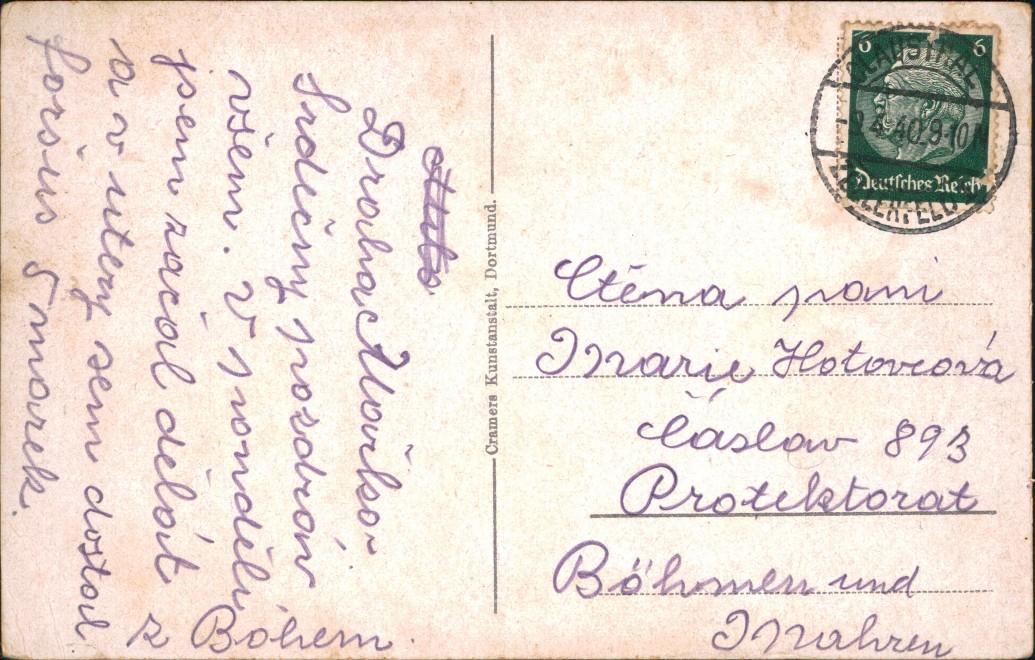 Drahá Mařko
Srdečny posdrav
všem. V pondělí
jsem začal dělat
a v utery sem dostal
foršus 5 marek.
z Bohem.
Cramers Kunstanstalt, Dortmund.
6 6
Deutsches Reich
CLAUSTHAL-
-9.4.40.9-10
ZELLERFELD
Ctěna pani
Marie Hotovcová
Čáslav 893
Protektorat
Böhmen und
Mahren